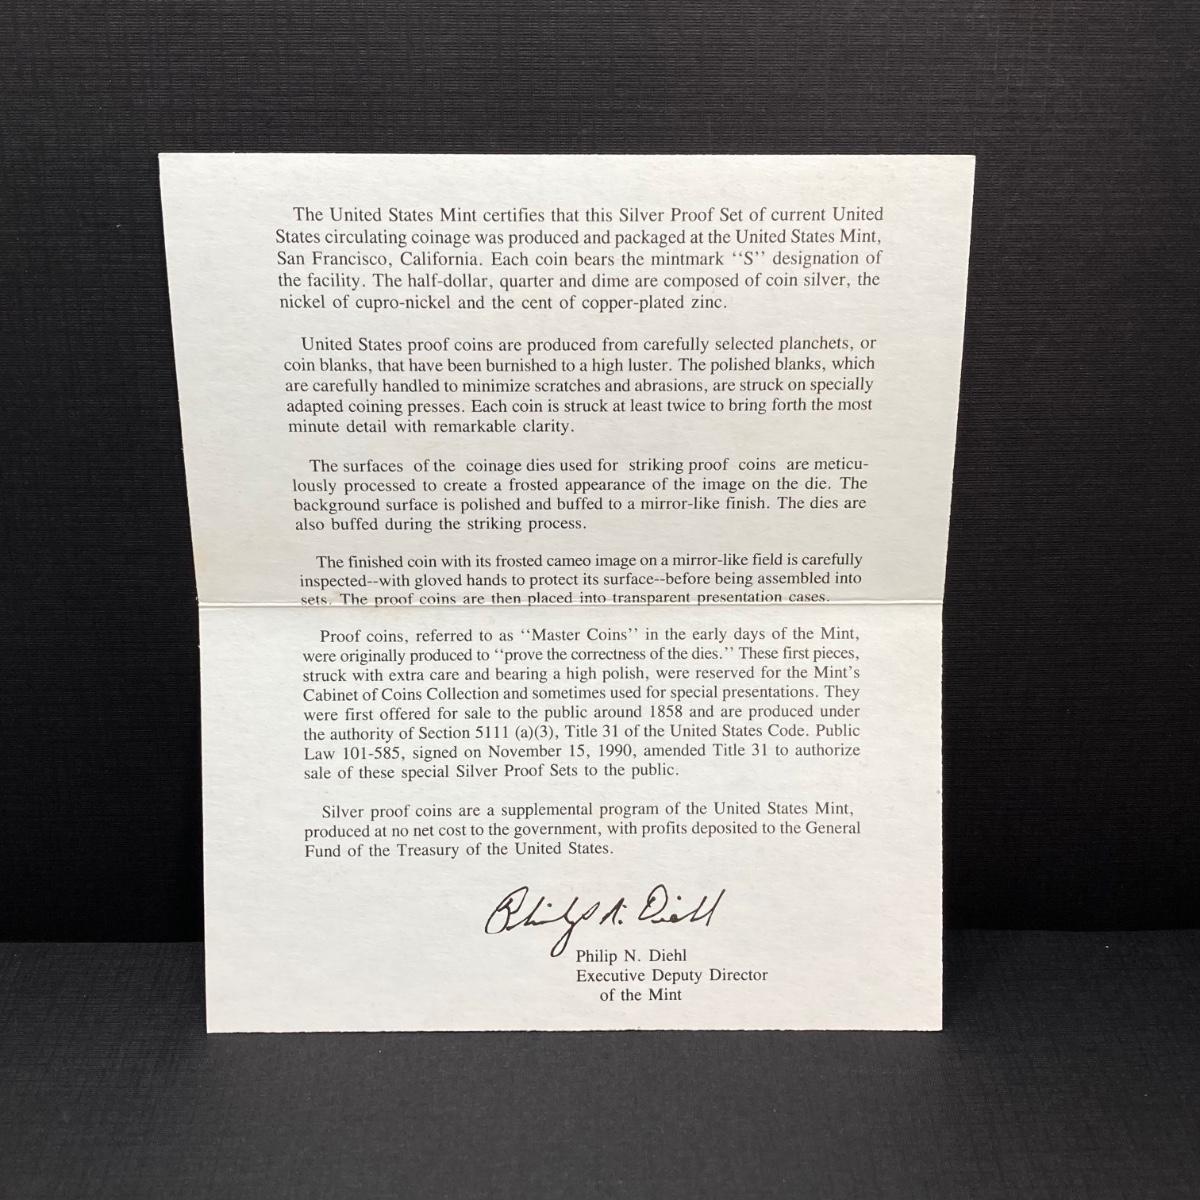 The United States Mint certifies that this Silver Proof Set of current United
States circulating coinage was produced and packaged at the United States Mint,
San Francisco, California. Each coin bears the mintmark ‘‘S’’ designation of
the facility. The half-dollar, quarter and dime are composed of coin silver, the
nickel of cupro-nickel and the cent of copper-plated zinc.
United States proof coins are produced from carefully selected planchets, or
coin blanks, that have been burnished to a high luster. The polished blanks, which
are carefully handled to minimize scratches and abrasions, are struck on specially
adapted coining presses. Each coin is struck at least twice to bring forth the most
minute detail with remarkable clarity.
The surfaces of the coinage dies used for striking proof coins are meticu-
lously processed to create a frosted appearance of the image on the die. The
background surface is polished and buffed to a mirror-like finish. The dies are
also buffed during the striking process.
The finished coin with its frosted cameo image on a mirror-like field is carefully
inspected--with gloved hands to protect its surface--before being assembled into
sets. The proof coins are then placed into transparent presentation cases.
Proof coins, referred to as ‘‘Master Coins’’ in the early days of the Mint,
were originally produced to ‘‘prove the correctness of the dies.’’ These first pieces,
struck with extra care and bearing a high polish, were reserved for the Mint’s
Cabinet of Coins Collection and sometimes used for special presentations. They
were first offered for sale to the public around 1858 and are produced under
the authority of Section 5111 (a)(3), Title 31 of the United States Code. Public
Law 101-585, signed on November 15, 1990, amended Title 31 to authorize
sale of these special Silver Proof Sets to the public.
Silver proof coins are a supplemental program of the United States Mint,
produced at no net cost to the government, with profits deposited to the General
Fund of the Treasury of the United States.
Philip N. Diehl
Philip N. Diehl
Executive Deputy Director
of the Mint